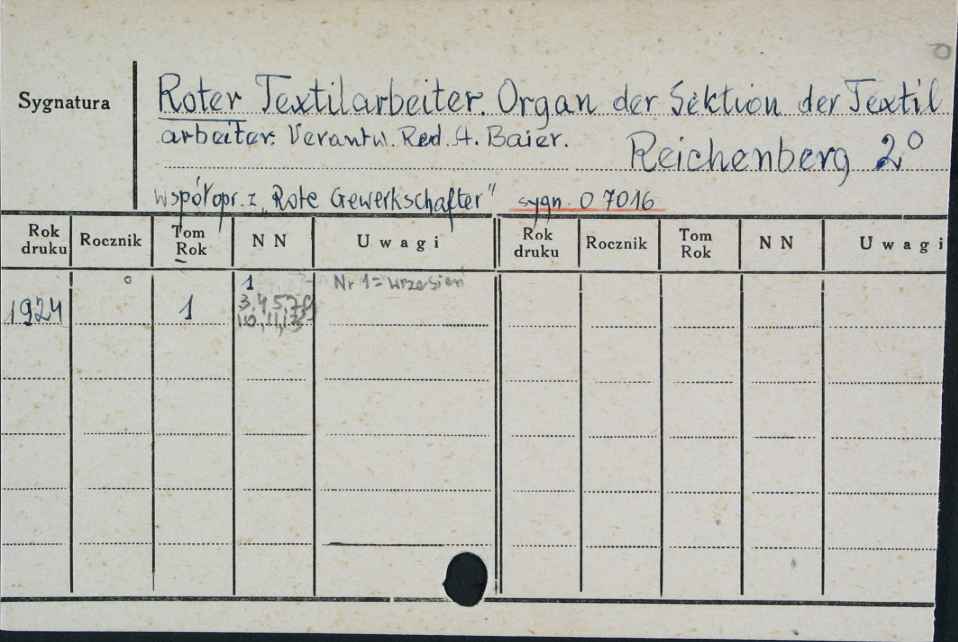 Sygnatura
Roter Textilarbeiter. Organ der Sektion der Textil
arbeiter. Verantw. Red. A. Baier.
Reichenberg 2°
współopr. z „Rote Gewerkschafter" sygn. O 7016
Rok druku Rocznik Tom Rok N N Uwagi Rok druku Rocznik Tom Rok N N Uwagi
1924 1 1 Nr 1 = wrzesień
3,4,5,7,9
10,11,13